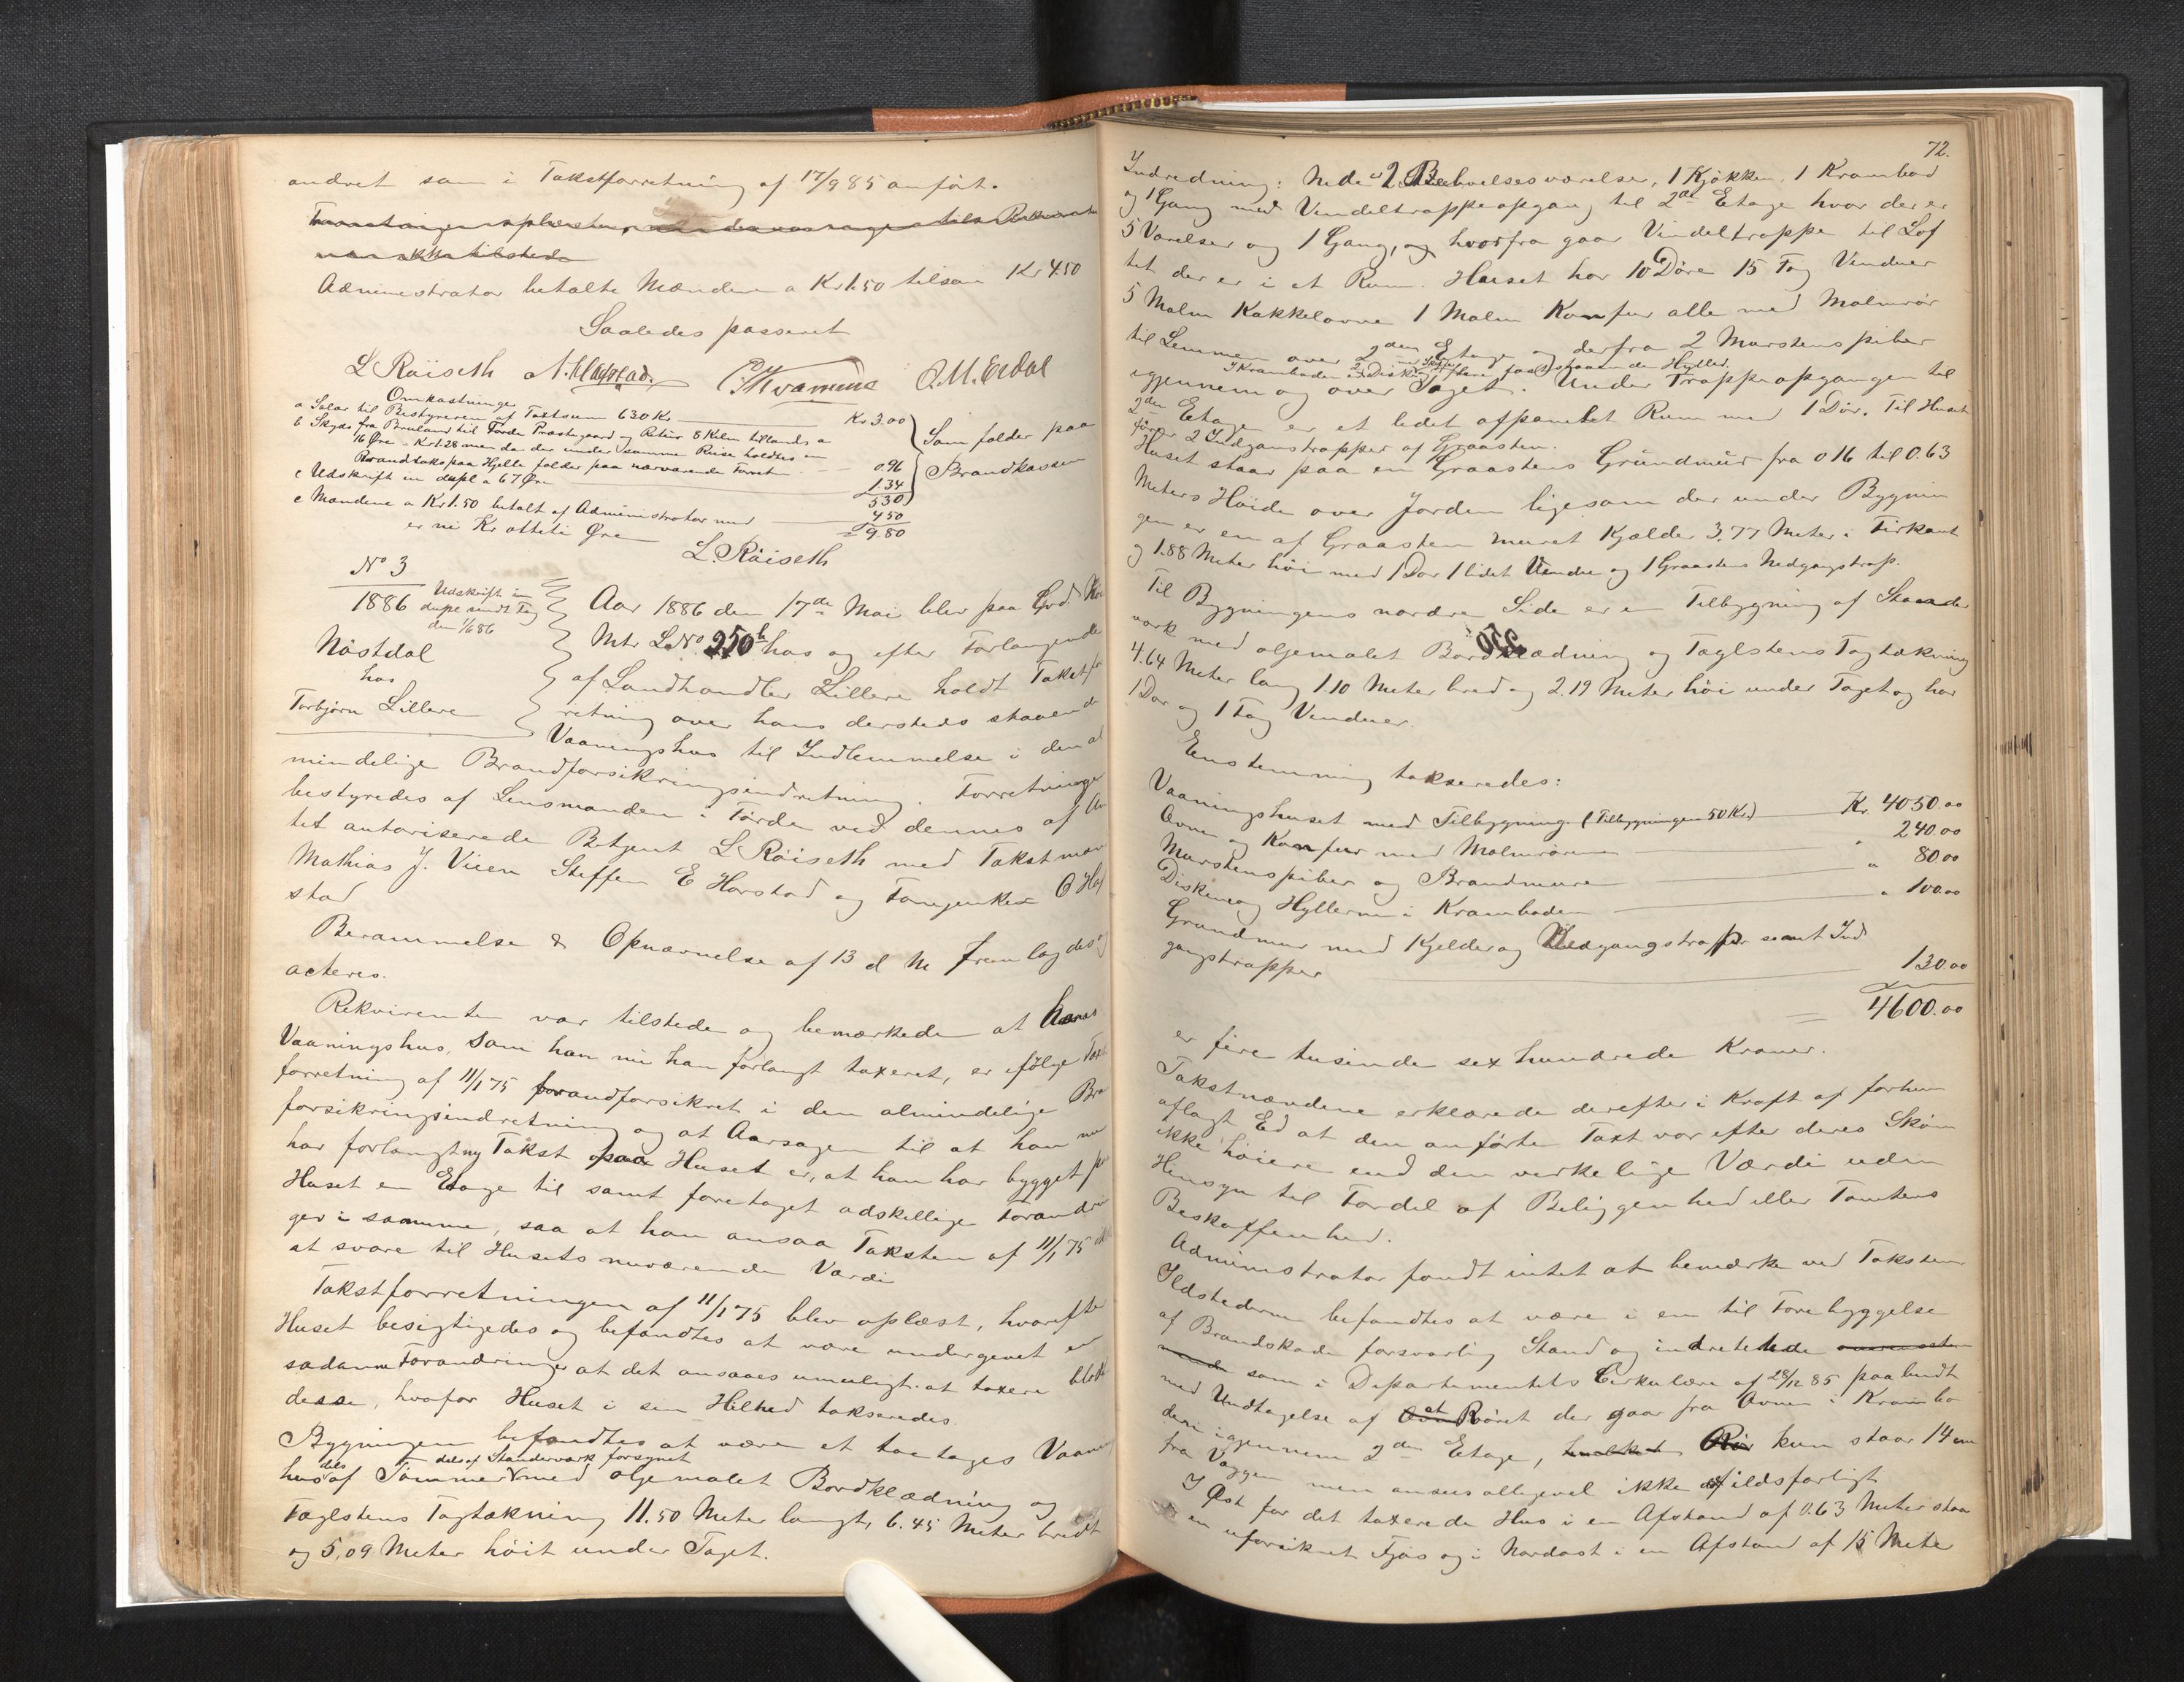 andret som i Takstforretning af 17/9 85 anført.
Administrator betalte Mændene a Kr 1.50 tilsam Kr 4.50
Saaledes passeret
L Röiseth O. M. Erdal
Omkostninger
a Salær til Bestyreren af Taxtsum 630 Kr Kr 3.00
b Skyds fra Bruland til Førde Præstegaard og Retur 8 Kilm tillands a
16 Øre = Kr 1.28 men da der under samme Reise holdtes en
Brandtakst paa Hjelle falder paa nærværende Forret 0.96
c Udskrift in dupl a 67 Øre 1.34
5.30
Som falder paa
Brandkassen
c Mændene a Kr 1.50 betalt af Administrator med 4.50
= 9.80
er ni Kr otteti Øre
L. Röiseth
No 3
1886
Udskrift in
duplo sendt Fog
den 1/6 86
Nöstdal
hos
Torbjørn Lillere
Aar 1886 den 17de Mai blev paa Grd.
Mtr LNo 250b hos og efter Forlangende
af Landhandler Lillere holdt Takstfor
retning over hans dersteds staaende
Vaaningshus til Indlemmelse i den al
mindelige Brandforsikringsindretning. Forretningen
bestyredes af Lensmanden i Førde ved dennes af Am
tet autoriserede Betjent L Röiseth med Takstmæn
Mathias J. Vieen Steffen E Horstad og
stad
Berammelse & Opnævnelse af 13 d M fremlagdes og
acteres.
Rekvirenten var tilstede og bemærkede at hans
Vaaningshus, som han nu han forlangt taxeret, er ifølge Taxt
forretning af 11/1 75 forandforsikret i den almindelige Bra
forsikringsindretning og at Aarsagen til at han nu
har forlangt ny Takst paa Huset er, at han har bygget paa
Huset en Etage til samt foretaget adskellige Forandrin
ger i samme, saa at han ansaa Taksten af 11/1 75 ikke
at svare til Husets nuværende Værdi
Takstforretningen af 11/1 75 blev oplæst, hvorefter
Huset besigtigedes og befandtes at være undergivet en
sadanne Forandringer at det ansaaes umuligt at taxere blot
desse, hvofor Huset i sin Hilhed takseredes.
Bygningen befandtes at være et toe tages Vaanings
des deles af Standerværk forsynet
hus af Tømmer med oljemalet Bordklædning og
Taglstens Tagtækning 11.50 Meter langt, 6.45 Meter bredt
og 5,09 Meter höit under Taget.
72.
Indredning: Nede er 2 Beboelsesværelser, 1 Kjøkken, 1 Krambod
og 1 Gang med Vendeltrappeopgang til 2den Etage hvor der er
5 Værelser og 1 Gang, og hvorfra gaar Vindeltrappe til Lof
tet der er i et Rum. Huset har 10 Døre 15 Fag Vinduer
5 Malm Kakkelovne 1 Malm Komfur alle med Malmrør
til Lemmen over 2den Etage og derfra 2 Murstenspiber
I Kramboden er Disk flere faststaaende Hylder.
igjennem og over Taget. Under Trappeopgangen til
2den Etage er et lidet afpanelet Rum med 1 Dør. Til Huset
fører 2 Indgangstrapper af Graasten.
Huset staar paa en Graastens Grundmur fra 0 16 til 0.63
Meters Höide over Jorden ligesom der under Bygnin
gen er en af Graasten muret Kjælder 3.77 Meter i Firkant
og 1.88 Meter höi med 1 Dør 1 lidet Vindu og 1 Graastens Nedgangstrap.
Til Bygningens nordre Side er en Tilbygning af Stander
værk med oljemalet Bordklædning og Taglstens Tagtækning
4.64 Meter lang 1.10 Meter bred og 2.19 Meter höi under Taget og har
1 Dør og 1 Fag Venduer.
Eenstemmig takseredes:
Vaaningshuset med Tilbygning (Tilbygningen 50 Kr.) Kr. 4050.00
Ovne og Komfur med Malmrørene " 240.00
Murstenspiber og Brandmure " 80.00
Disken og Hyllerne i Kramboden " 100.00
Grundmur med Kjelder og Nedgangstrapper samt Ind
gangstrapper 130.00
= 4600.00
er fire tusinde sex hundrede Kroner.
Takstmændene erklærede derefter i Kraft af forhen
aflagt Ed at den anførte Taxt var efter deres Skøn
ikke høiere end den verkelige Værdi uden
Hensyn til Fordel af Beliggenhed eller Tomtens
Beskaffenhed.
Administrator fandt intet at bemærke ved Taksten
Ildstederne befandtes at være i en til Forebyggelse
af Brandskade forsvarlig Stand og indrettede
som i Departementets Cirkulære af 28/12 85 paabudt
med Undtagelse af at Røret der gaar fra Ovnen i Krambo
den igjennem 2den Etage, kun staar 14 cm
fra Væggen men ansees alligevel ikke ildsfarligt
I Øst for det taxerede Hus i en Afstand af 0.63 Meter staar
en uforsikret Fjøs og i Nordøst i en Afstand af 15 Meter